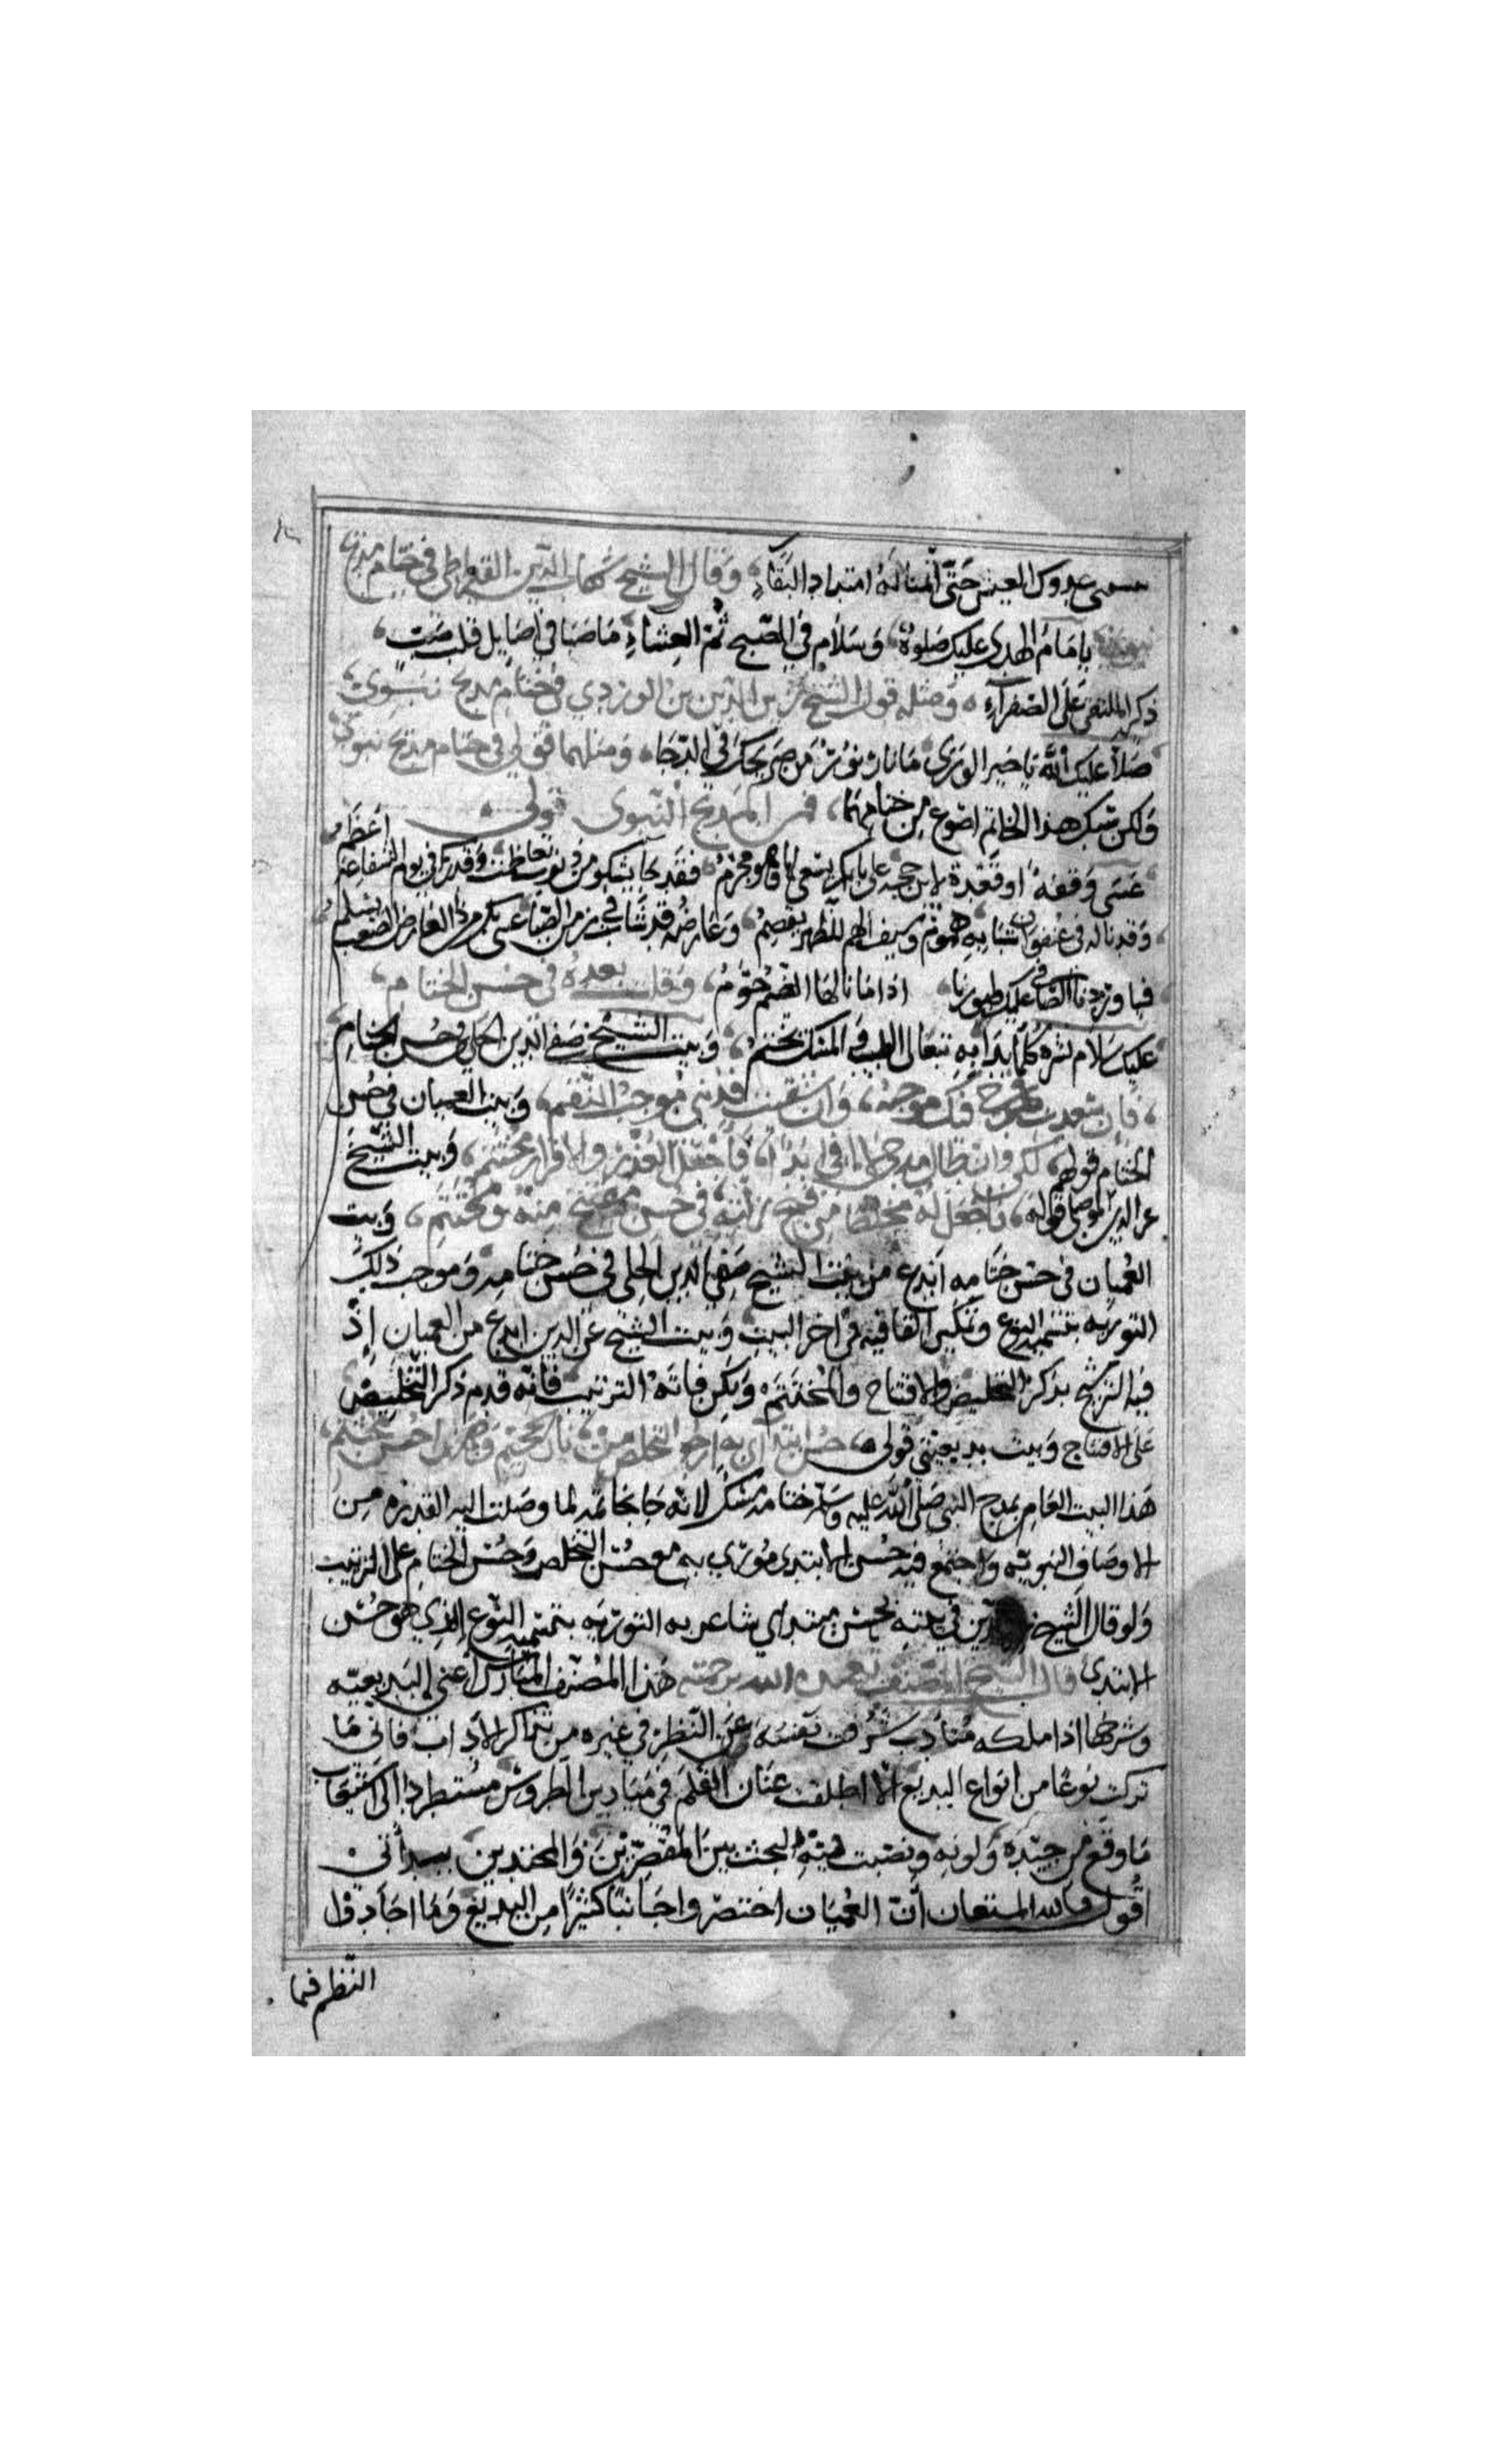 حتى أفنا له امتداد البقاء وقال الشيخ شهاب الدين القيراطي في ختام مديح
يا إمام الهدى عليك صلوة وسلام في الصبح ثم العشاء ما صبا في أصايل قلب صب
ذكر الملتقى على الصفراء ومثله قول الشيخ زين الدين بن الوردي في ختام مديح نبوي
صلا عليك الله يا خير الورى ما نار نور من ضريحك في الدجا ومثلهما قولي في ختام مديح نبوي
ولكن مسك هذا الخاتم اضوع من ختامهما فمن المديح النبوي قولي
عسى وقفة او قعدة لابن حجة على بابكم يسعى لها وهو محرم فقد جا يشكو من ذنوب تعاظمت وقدرك في يوم الشفاعة اعظم
وقد ناله في عنفوان شبابه هموم وسيف الهم للظهر يقصم وعارضه قد شاب في زمن الصبا عسى بكم من ذا العارض الصعب يسلم
فيا وردنا الصافي عليك طيورنا اذا ما نالها الضيم حوم وقلت بعده في حسن الختام
عليك سلام نشره كلما بدا به يتغالى الطيب والمسك يختم وبيت الشيخ صفي الدين الحلي في حسن الختام
فإن سعدت فمدحي فيك موجبه وان شقيت فذنبي موجب النقم وبيت العميان في حسن
الختام قولهم لكن وان طال مدحي لا افي ابدا فأجعل العذر والاقرار مختتمي وبيت الشيخ
عز الدين الموصلي قوله فاجعل له مخلصا من قبح زلته في حسن مفتتح منه ومختتم وبيت
العميان في حسن ختامه ابدع من بيت الشيخ صفي الدين الحلي في حسن ختامه وموجب ذلك
التوريه بتسمية النوع وتمكين القافيه في اخر البيت وبيت الشيخ عز الدين ابدع من العميان إذ
فيه الترشيح بذكر التخليص والافتتاح والمختتم ولكن فاته الترتيب فانه قدم ذكر التخليص
على الافتتاح وبيت بديعيتي قولي حسن ابتداي به ارجو التخلص من نار الجحيم وهذا حسن مختتمي
هذا البيت العامر بمدح النبي صلى الله عليه وسلم ختامه مسك لانه جا خاتمة لما وصلت اليه القدره من
الاوصاف النبويه واجتمع فيه حسن الابتدى مورى به مع حسن التخلص وحسن الختام على الترتيب
ولو قال الشيخ الدين في بيته بحسن مبتداي شاعر به التوريه بتسمية النوع الذي هو حسن
الابتدى قال الشيخ المصنف تغمده الله برحمته هذا المصنف المبارك أعني البديعيه
وشرحها اذا ملكه متادب شرفت نفسه عن النظر في غيره من تذاكر الاداب فاني ما
تركت نوعا من انواع البديع الا اطلقت عنان القلم في ميادين الطروس مستطردا الى استيعاب
ما وقع من جيده ونصبت البحث بين المقصرين والمجيدين
اقول والله المستعان أن العميان اختصروا جانبا كثيرا من البديع وما اجادوا
النظم فيما